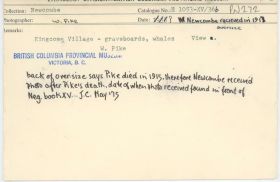 Collection: Newcombe Catalogue No.
Photographer: W. Pike Date: Newcombe received in 1913
Remarks:
Kingcome Village - graveboards, whales
W. Pike
BRITISH COLUMBIA PROVINCIAL MUSEUM
VICTORIA, B. C.
back of oversize says Pike died in 1915, therefore Newcombe received
photo after Pike's death, date of when photo received found in front of
Neg. book XV... J.C. May '75